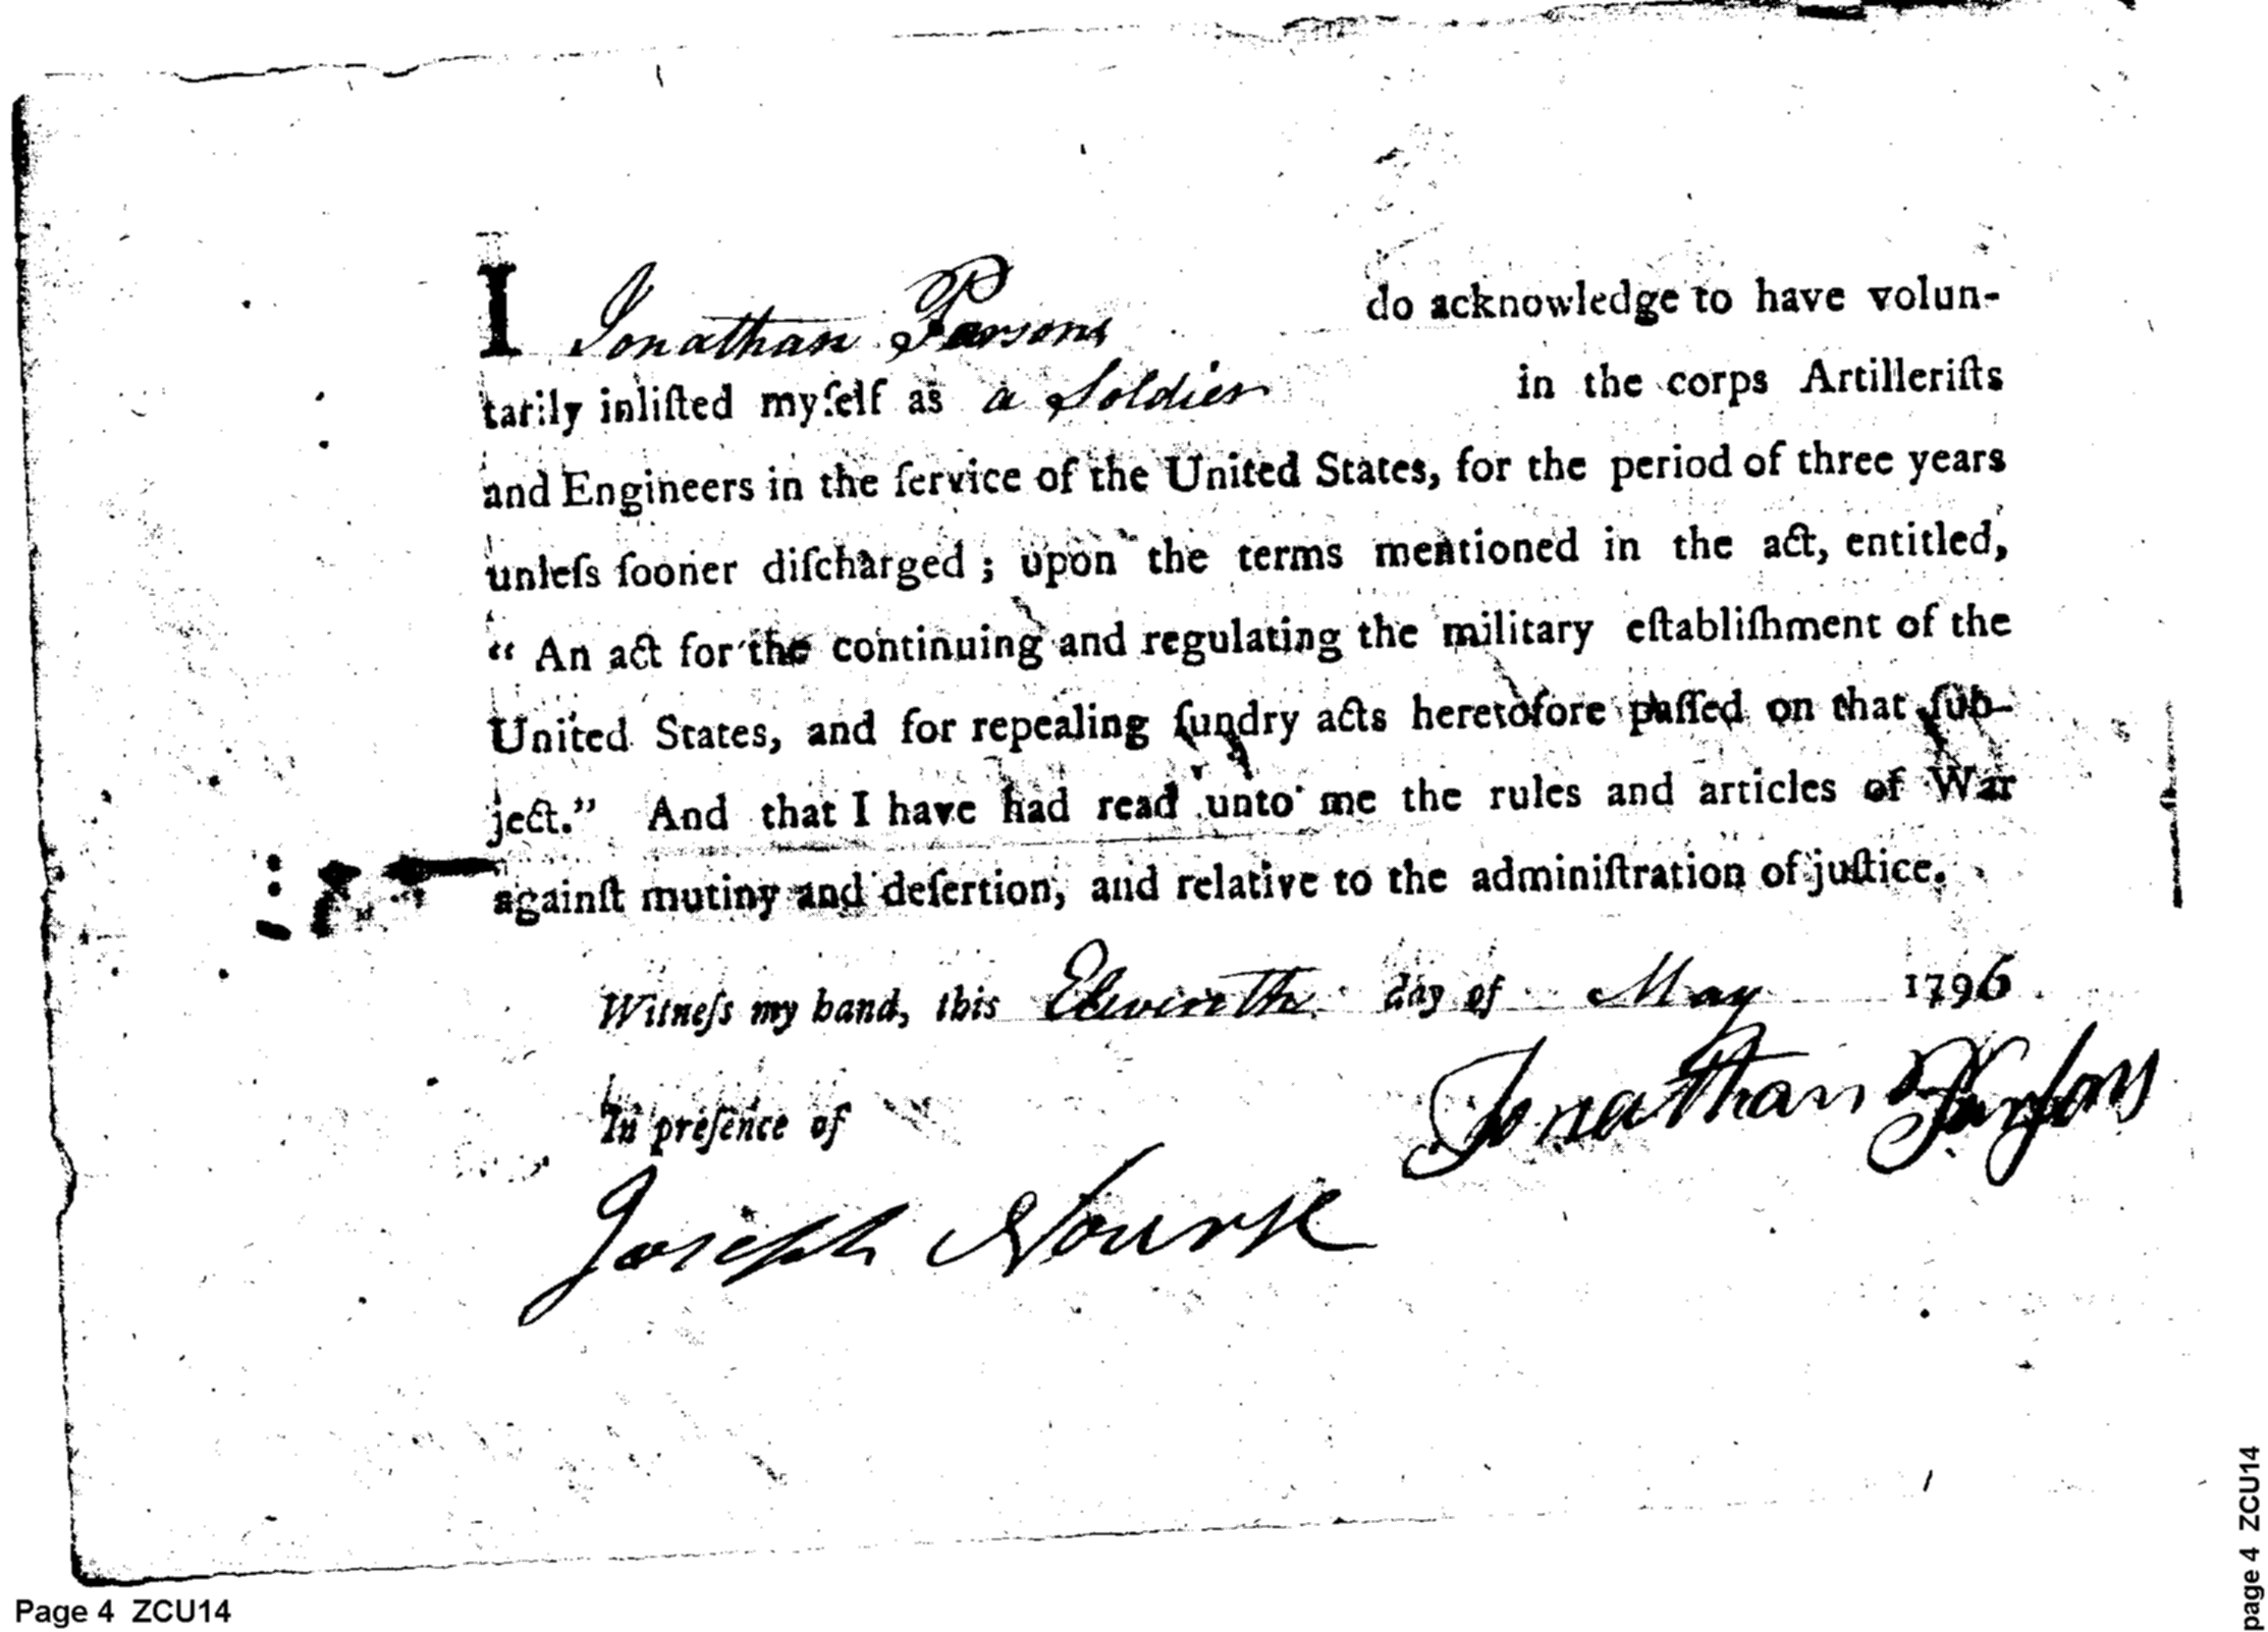 I Jonathan Parsons do acknowledge to have volun-
tarily inliſted myſelf as a Soldier in the corps Artilleriſts
and Engineers in the ſervice of the United States, for the period of three years
unleſs ſooner diſcharged ; upon the terms mentioned in the act, entitled,
“ An act for the continuing and regulating the military eſtabliſhment of the
United States, and for repealing ſundry acts heretofore paſſed on that ſub-
ject.” And that I have had read unto me the rules and articles of War
againſt mutiny and deſertion, and relative to the adminiſtration of juſtice.
Witneſs my hand, this Elevinth day of May 1796.
In preſence of
Jonathan Parſons
Joseph Nourse
Page 4 ZCU14
page 4 ZCU14